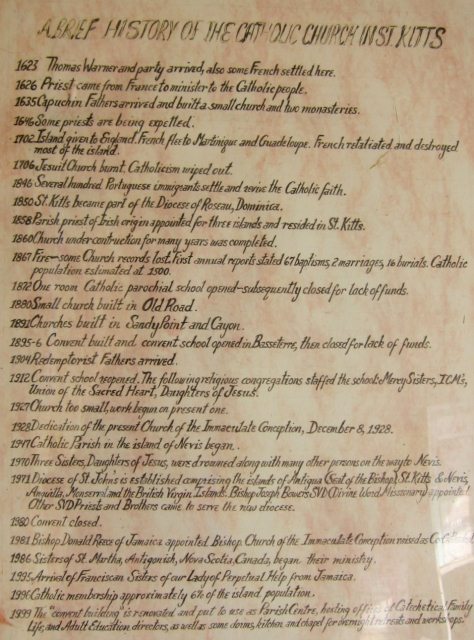 A BRIEF HISTORY OF THE CATHOLIC CHURCH IN ST. KITTS
1623 Thomas Warner and party arrived, also some French settled here.
1626 Priest came from France to minister to the Catholic people.
1635 Capuchin Fathers arrived and built a small church and two monasteries.
1646 Some priests are being expelled.
1702 Island given to England. French flee to Martinique and Guadeloupe. French retaliated and destroyed
most of the island.
1706 Jesuit Church burnt. Catholicism wiped out.
1846 Several hundred Portuguese immigrants settle and revive the Catholic faith.
1850 St. Kitts became part of the Diocese of Roseau, Dominica.
1858 Parish priest of Irish origin appointed for three islands and resided in St. Kitts.
1860 Church under contruction for many years was completed.
1867 Fire-some Church records lost. First annual reports stated 67 baptisms, 2 marriages, 16 burials. Catholic
population estimated at 1500.
1872 One room Catholic parochial school opened-subsequently closed for lack of funds.
1880 Small church built in Old Road.
1891 Churches built in Sandy Point and Cayon.
1895-6 Convent built and convent school opened in Basseterre, then closed for lack of funds.
1904 Redemptorist Fathers arrived.
1912 Convent school reopened. The following religious congregations staffed the school: Mercy Sisters, I.C.M's,
Union of the Sacred Heart, Daughters of Jesus.
1927 Church too small, work begun on present one.
1928 Dedication of the present Church of the Immaculate Conception, December 8, 1928.
1947 Catholic Parish in the island of Nevis began.
1970 Three Sisters, Daughters of Jesus, were drowned along with many other persons on the way to Nevis.
1971 Diocese of St. John's is established comprising the islands of Antigua (Seat of the Bishop), St. Kitts & Nevis,
Anguilla, Monserrat and the British Virgin Islands. Bishop Joseph Bowers SVD (Divine Word Missionary) appointed
Other SVD Priests and Brothers came to serve the new diocese.
1980 Convent closed.
1981 Bishop Donald Reece of Jamaica appointed Bishop. Church of the Immaculate Conception raised as Co-Cathedral
1986 Sisters of St. Martha, Antigonish, Nova Scotia, Canada, began their ministry.
1995 Arrival of Franciscan Sisters of our Lady of Perpetual Help from Jamaica.
1996 Catholic membership approximately 6% of the island population.
1999 The "convent building" is renovated and put to use as Parish Centre, hosting offices of Catechetical, Family
Life, and Adult Education directors, as well as some dorms, kitchen and chapel for overnight retreats and workshops.